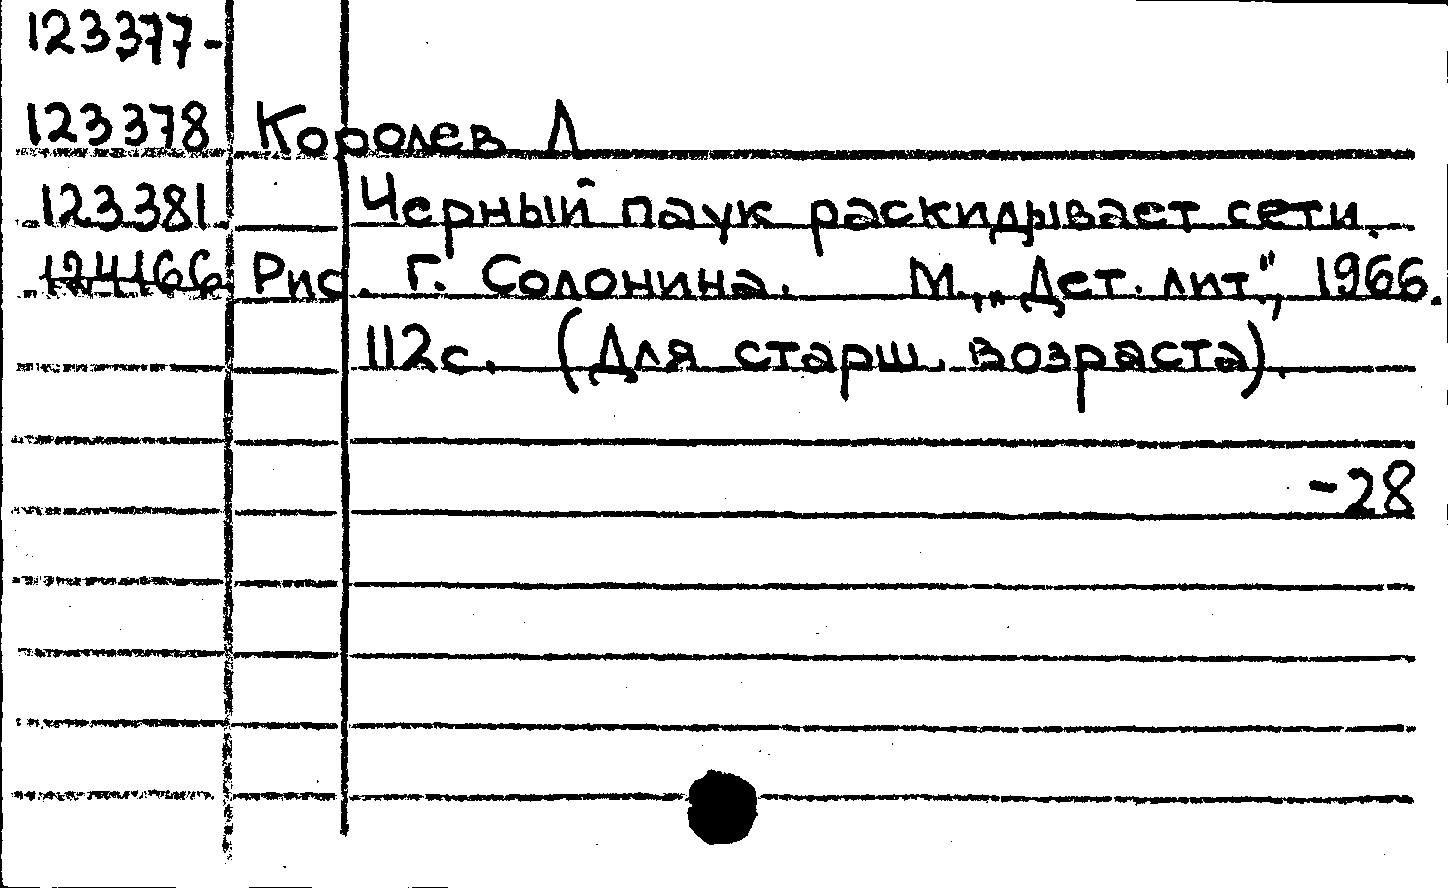 123377-
123378 Королев Л
123381 Черный паук раскидывает сети.
124166 Рис. Г. Солонина. М., „Дет. лит.", 1966.
112с. (Для старш. возраста).
-28